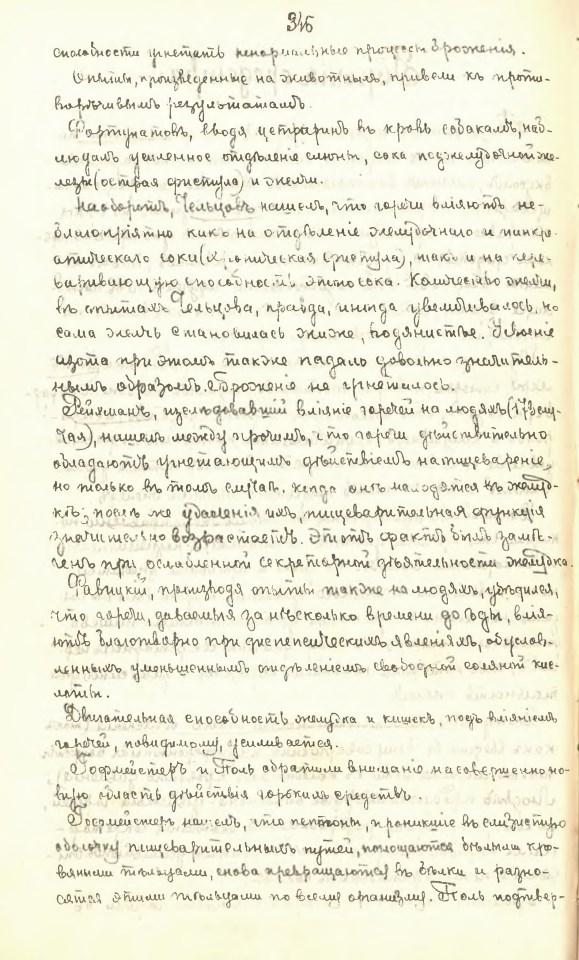 346
способности угнетать ненормальные процессы броженія.
Опыты, произведенные на животныхъ, привели къ проти-
ворѣчивымъ результатамъ.
Фортунатовъ, вводя цетраринъ въ кровь собакамъ, наб-
людалъ усиленное отдѣленіе слюны, сока поджелудочной же-
лезы (острая фистула) и желчи.
Наоборотъ, Чельцовъ нашелъ, что горечи вліяютъ не-
благопріятно какъ на отдѣленіе желудочнаго и панкре-
атическаго сока (хроническая фистула), такъ и на пере-
варивающую способность этого сока. Количество желчи,
въ опытахъ Чельцова, правда, иногда увеличивалось, но
сама желчь становилась жиже, водянистѣе. Усвоеніе
азота при этомъ также падало довольно значитель-
нымъ образомъ. Броженіе не угнеталось.
Рейхманъ, изслѣдовавшій вліяніе горечей на людяхъ (173 слу-
чая), нашелъ между прочимъ, что горечи дѣйствительно
обладаютъ угнетающимъ дѣйствіемъ на пищевареніе,
но только въ томъ случаѣ, когда онѣ находятся въ желуд-
кѣ; послѣ же удаленія ихъ, пищеварительная функція
значительно возрастаетъ. Этотъ фактъ былъ замѣ-
ченъ при ослабленной секреторной дѣятельности желудка.
Равицкій, производя опыты также на людяхъ, убѣдился,
что горечи, даваемыя за нѣсколько времени до ѣды, влія-
ютъ благотворно при диспепсическихъ явленіяхъ, обуслов-
ленныхъ уменьшеннымъ отдѣленіемъ свободной соляной кис-
лоты.
Двигательная способность желудка и кишекъ, подъ вліяніемъ
горечей, повидимому, усиливается.
Гофмейстеръ и Поль обратили вниманіе на совершенно но-
вую область дѣйствія горькихъ средствъ.
Гофмейстеръ нашелъ, что пептоны, проникшіе въ слизистую
оболочку пищеварительныхъ путей, поглощаются бѣлыми кро-
вяными тѣльцами, снова превращаются въ бѣлки и разно-
сятся этими тѣльцами по всему организму. Поль подтвер-